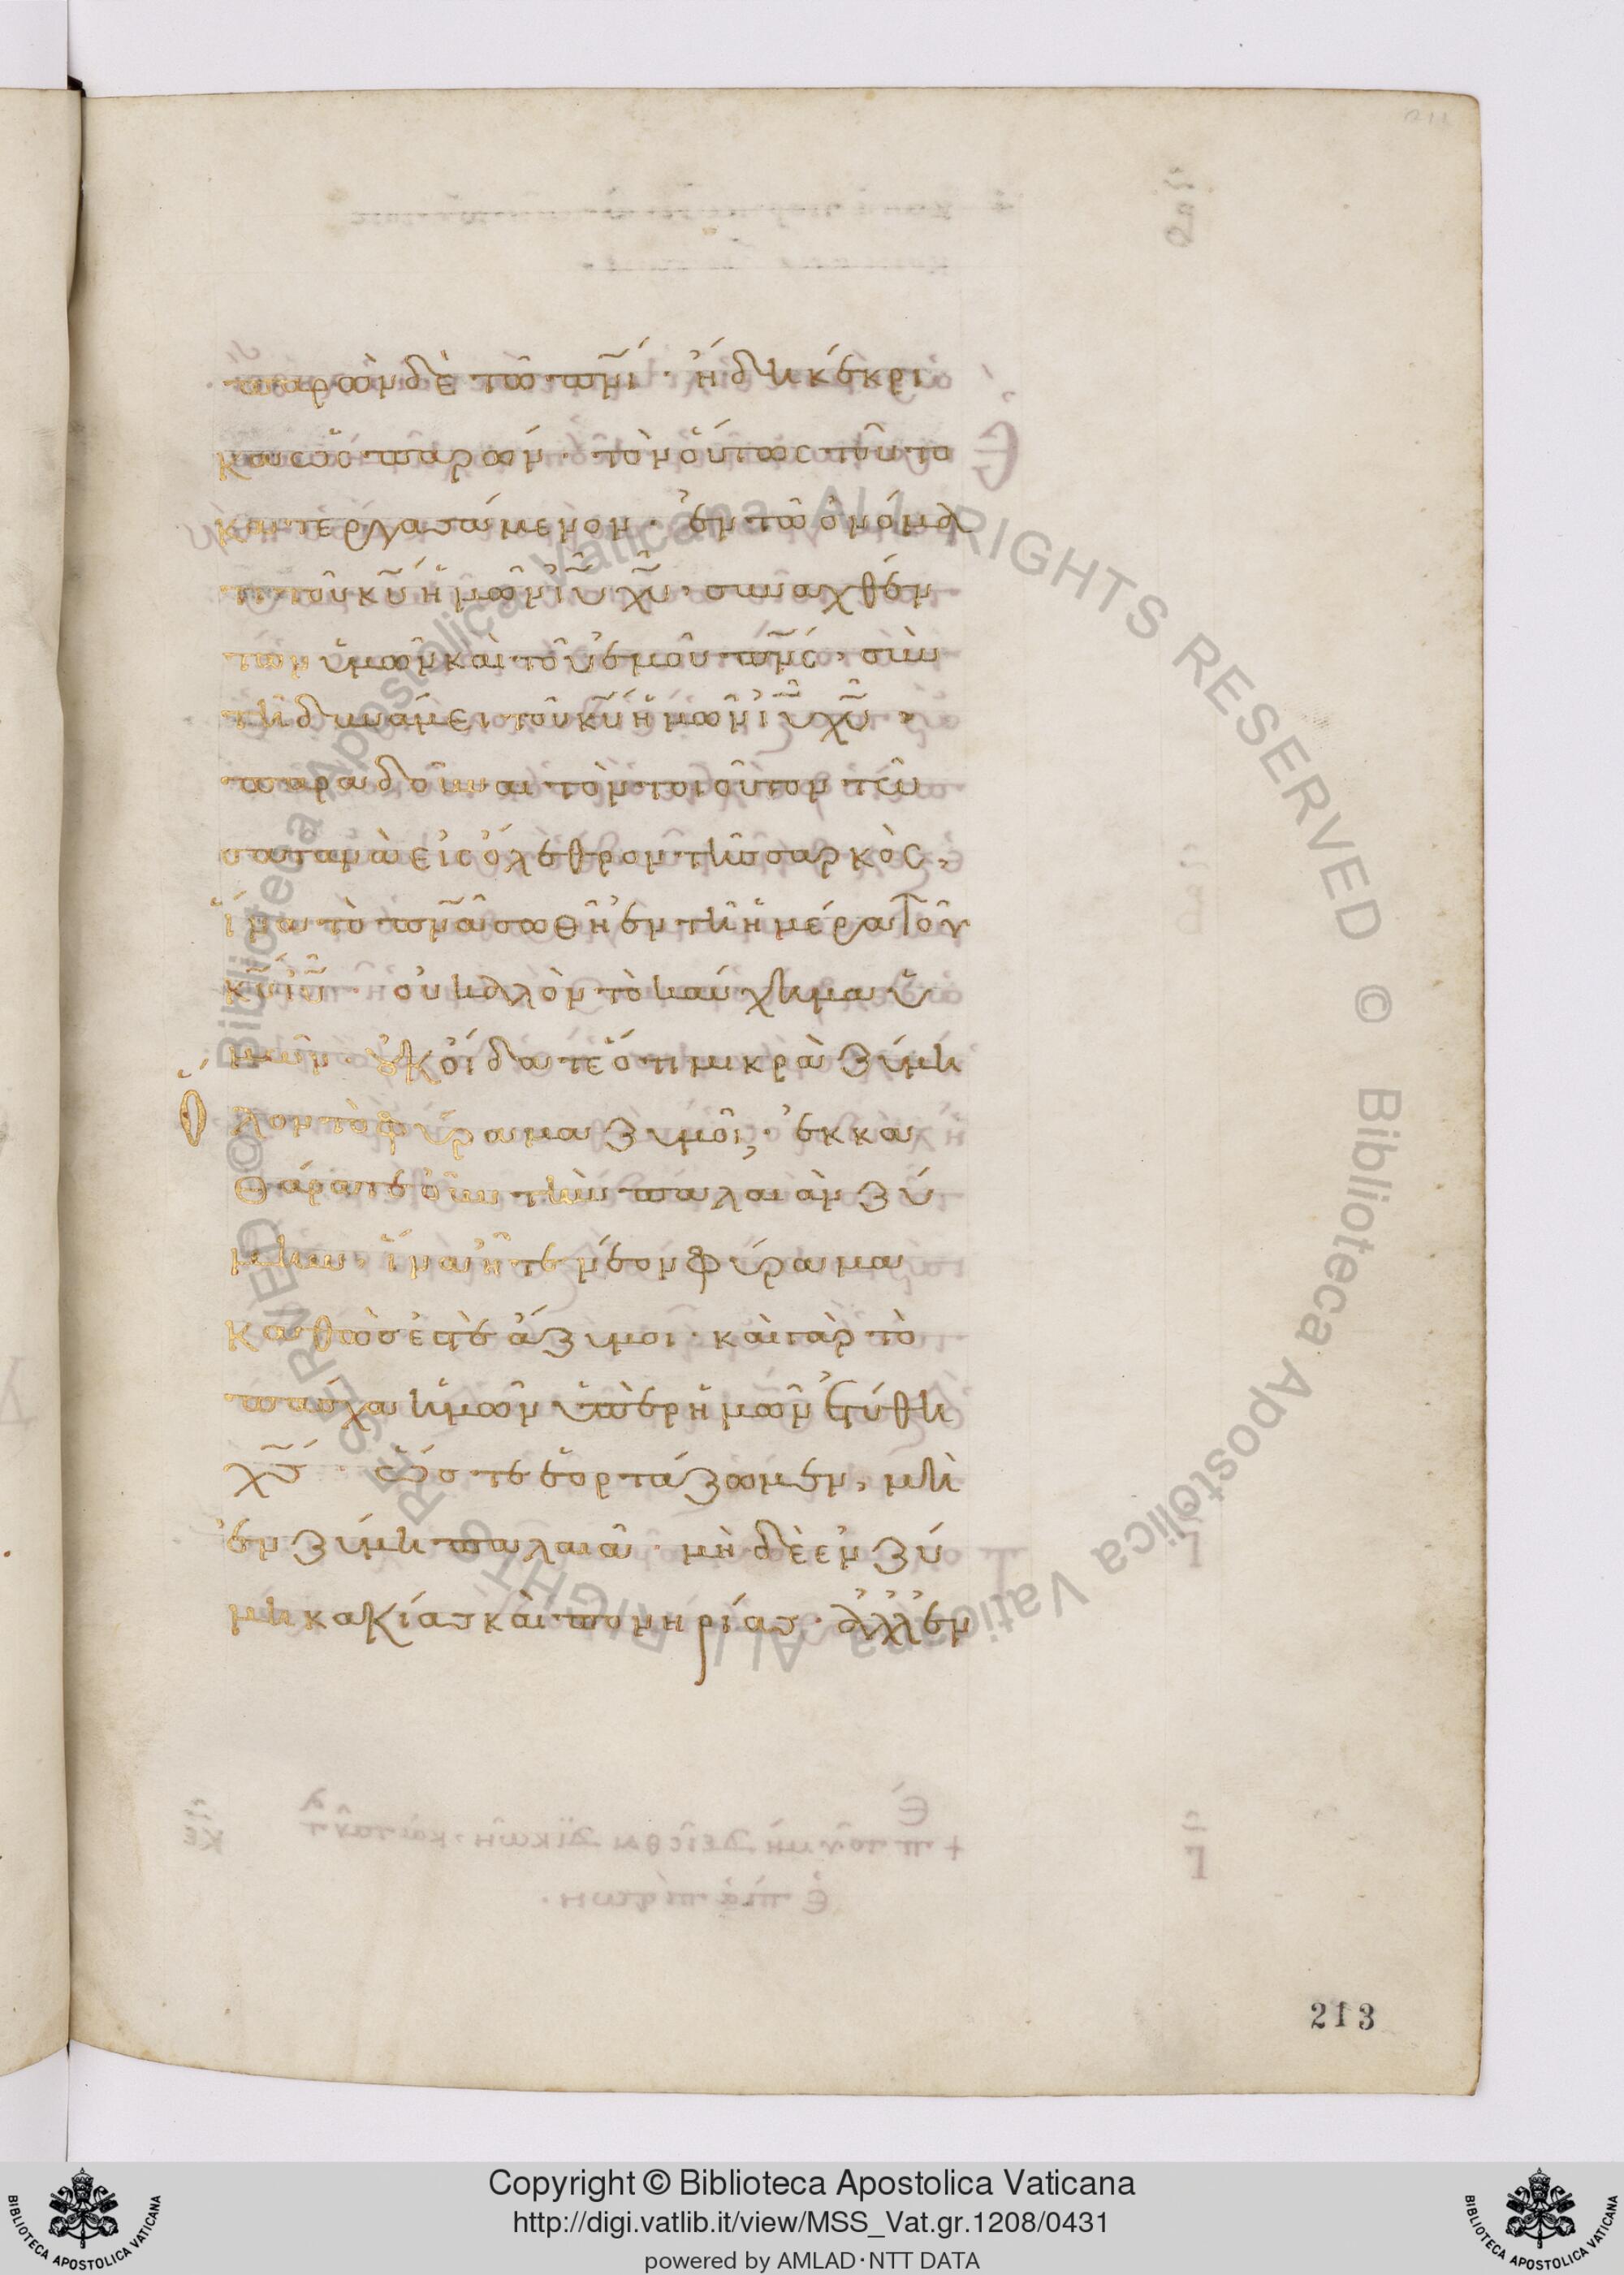 παρὼν δὲ τῶ πν̅ι· ἤδη κέκρι
κα ὡς παρών· τὸν οὕτως τοῦτο
κατεργασάμενον· ἐν τῶ ὀνόμα
τι τοῦ κ̅υ ἡμῶν ι̅υ χ̅υ· συναχθέν
των ὑμῶν καὶ τοῦ ἐμοῦ πν̅ς· σὺν
τῆ δυνάμει τοῦ κ̅υ ἡμῶν ι̅υ χ̅υ·
παραδοῦναι τὸν τοιοῦτον τῶ
σατανᾶ εἰς ὄλεθρον τῆς σαρκὸς,
ἵνα τὸ πν̅α σωθῆ ἐν τῆ ἡμέρα τοῦ
κ̅υ ι̅υ· οὐ καλὸν τὸ καύχημα ὑ
μῶν· οὐκ οἴδατε ὅτι μικρὰ ζύμη
ὅλον τὸ φύραμα ζυμοῖ; ἐκκα
θάρατε οὖν τὴν παλαιὰν ζύ
μην, ἵνα ἦτε νέον φύραμα
καθώς ἐστε ἄζυμοι· καὶ γὰρ τὸ
πάσχα ἡμῶν ὑπὲρ ἡμῶν ἐτύθη
χ̅ς· ὥστε ἑορτάζωμεν, μὴ
ἐν ζύμη παλαιᾶ· μὴ δὲ ἐν ζύ
μη κακίας καὶ πονηρίας· ἀλλ' ἐν
213
Copyright © Biblioteca Apostolica Vaticana
http://digi.vatlib.it/view/MSS_Vat.gr.1208/0431
powered by AMLAD·NTT DATA
BIBLIOTECA APOSTOLICA VATICANA
BIBLIOTECA APOSTOLICA VATICANA
Biblioteca Apostolica Vaticana ALL RIGHTS RESERVED © Biblioteca Apostolica Vaticana ALL RIGHTS RESERVED ©